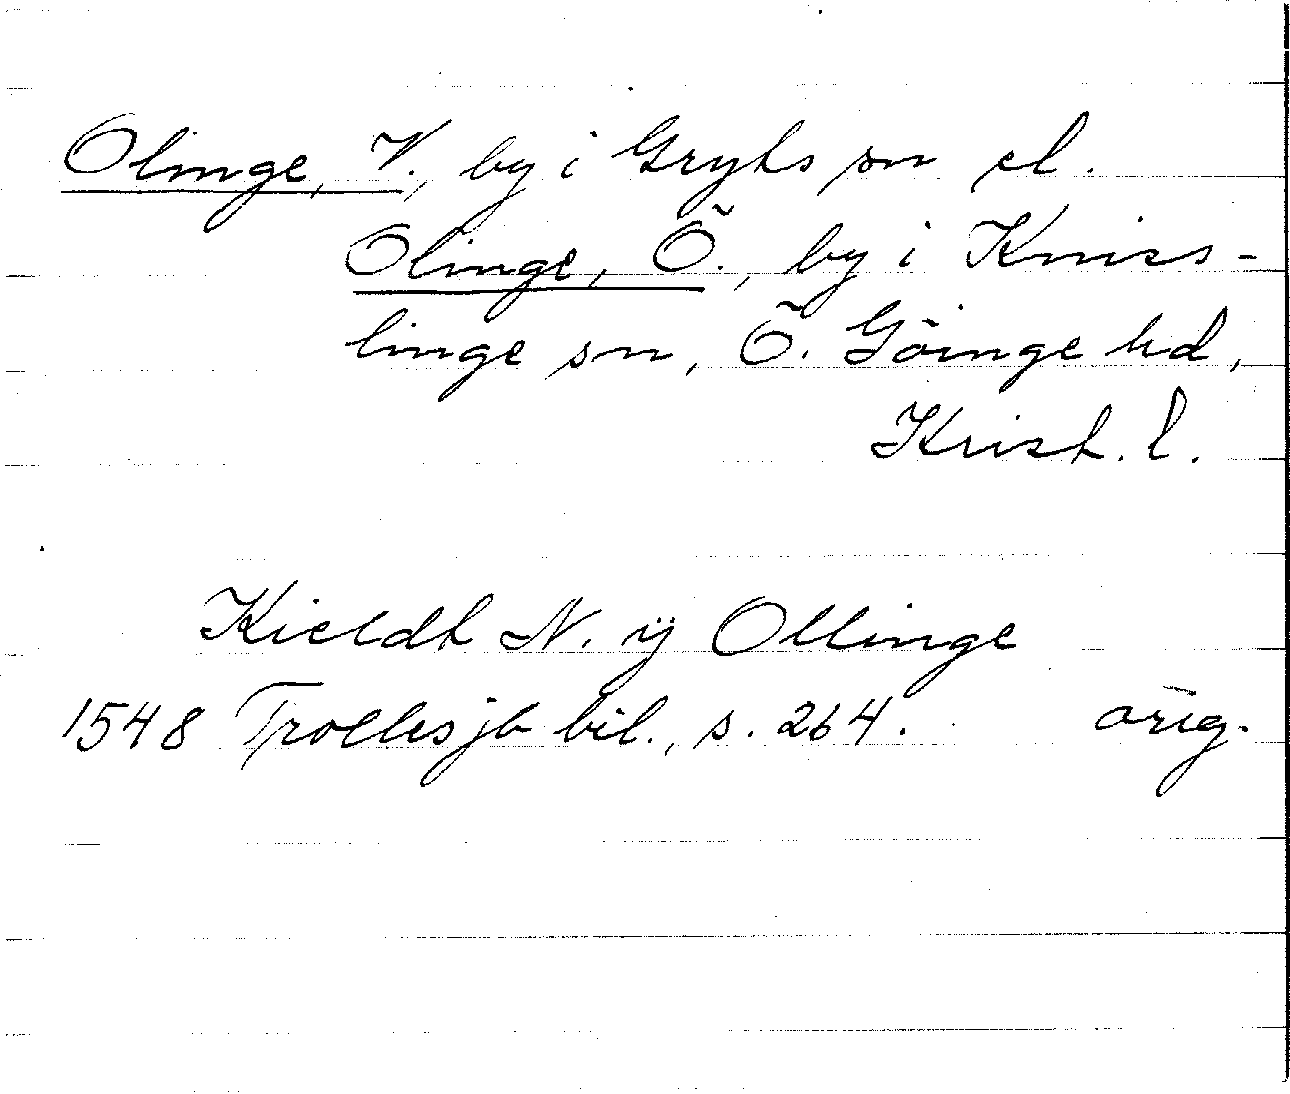 Olinge, V., by i Gryts sn el.
Olinge, Ö., by i Kniss-
linge sn, Ö. Göinge hd,
Krist. l.
Kieldt N. ÿ Ollinge
1548 Trollesjb bil., s. 264. orig.